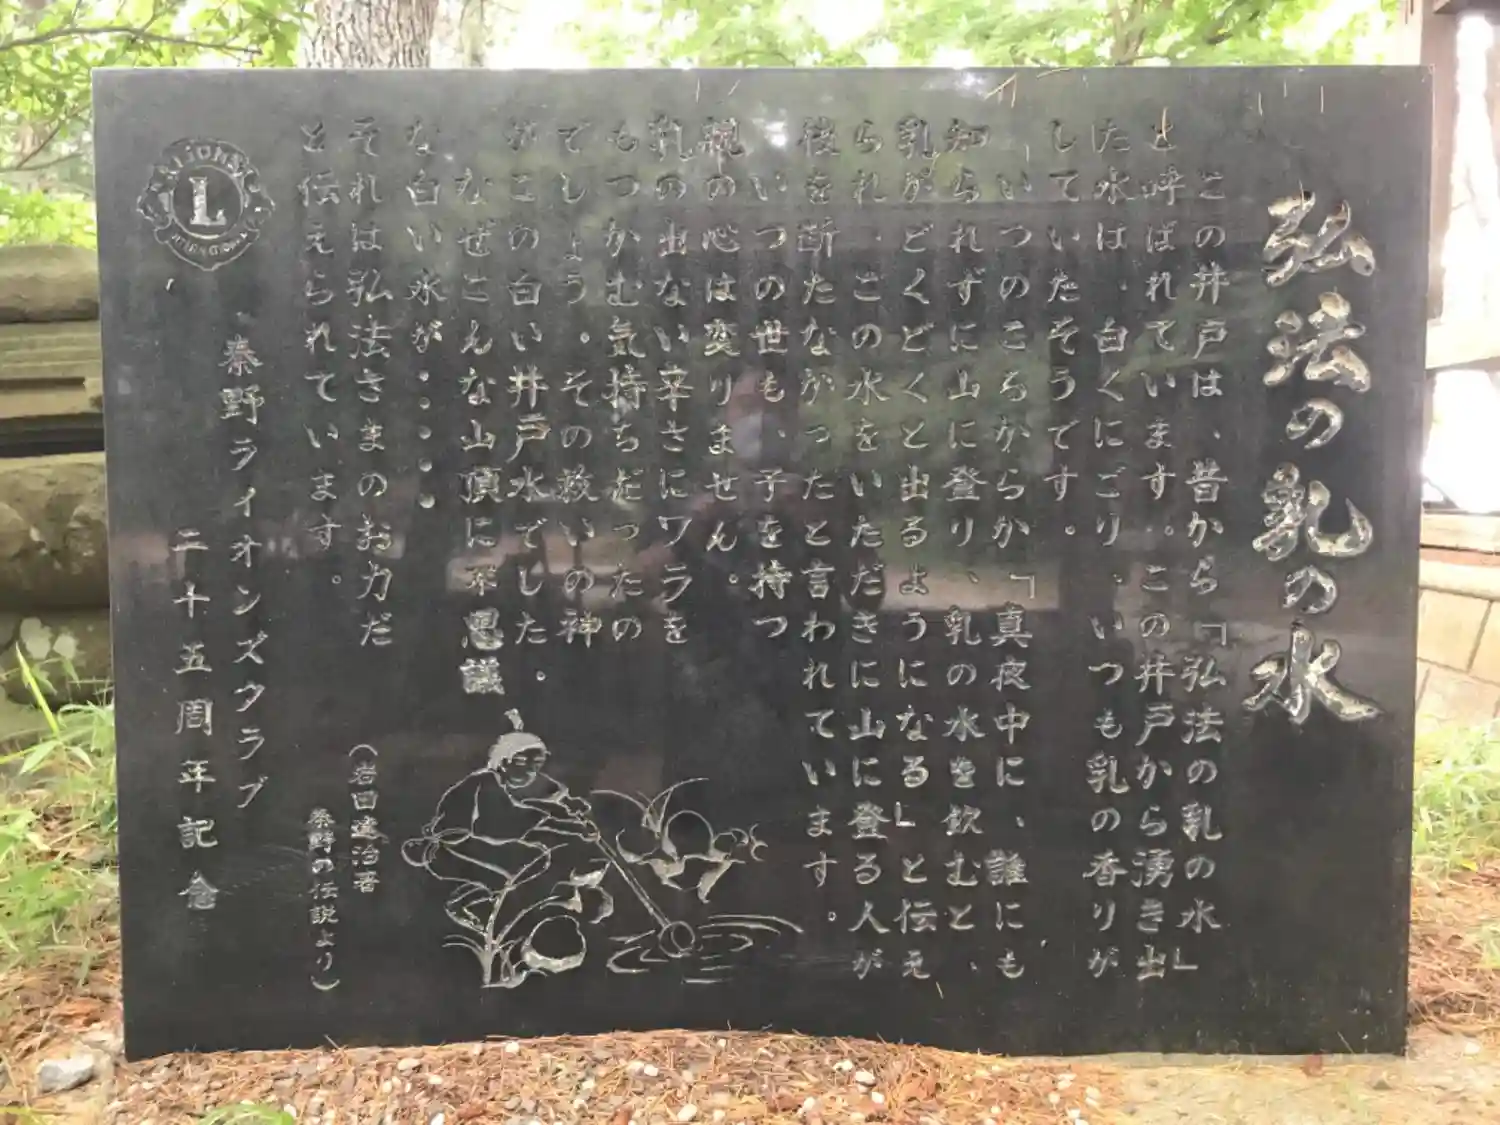 弘法の乳の水
ここの井戸は、昔から「弘法の乳の水」
と呼ばれています。この井戸から湧き出
た水は、白くにごり、いつも乳の香りが
していたそうです。
いつのころからか「真夜中に、誰にも
知られずに山に登り、乳の水を飲むと、
乳がどくどくと出るようになる」と伝え
られ、この水をいただきに山に登る人が
後を断たなかったと言われています。
いつの世も、子を持つ
親の心は変りません。
乳の出ない辛さにワラを
もつかむ気持ちだったの
でしょう。その救いの神
がこの白い井戸水でした。
なぜこんな山頂に不思議
な白い水が・・・・・
それは弘法さまのお力だ
と伝えられています。
(岩田達治著
秦野の伝説より)
LIONS
L
INTERNATIONAL
秦野ライオンズクラブ
二十五周年記念